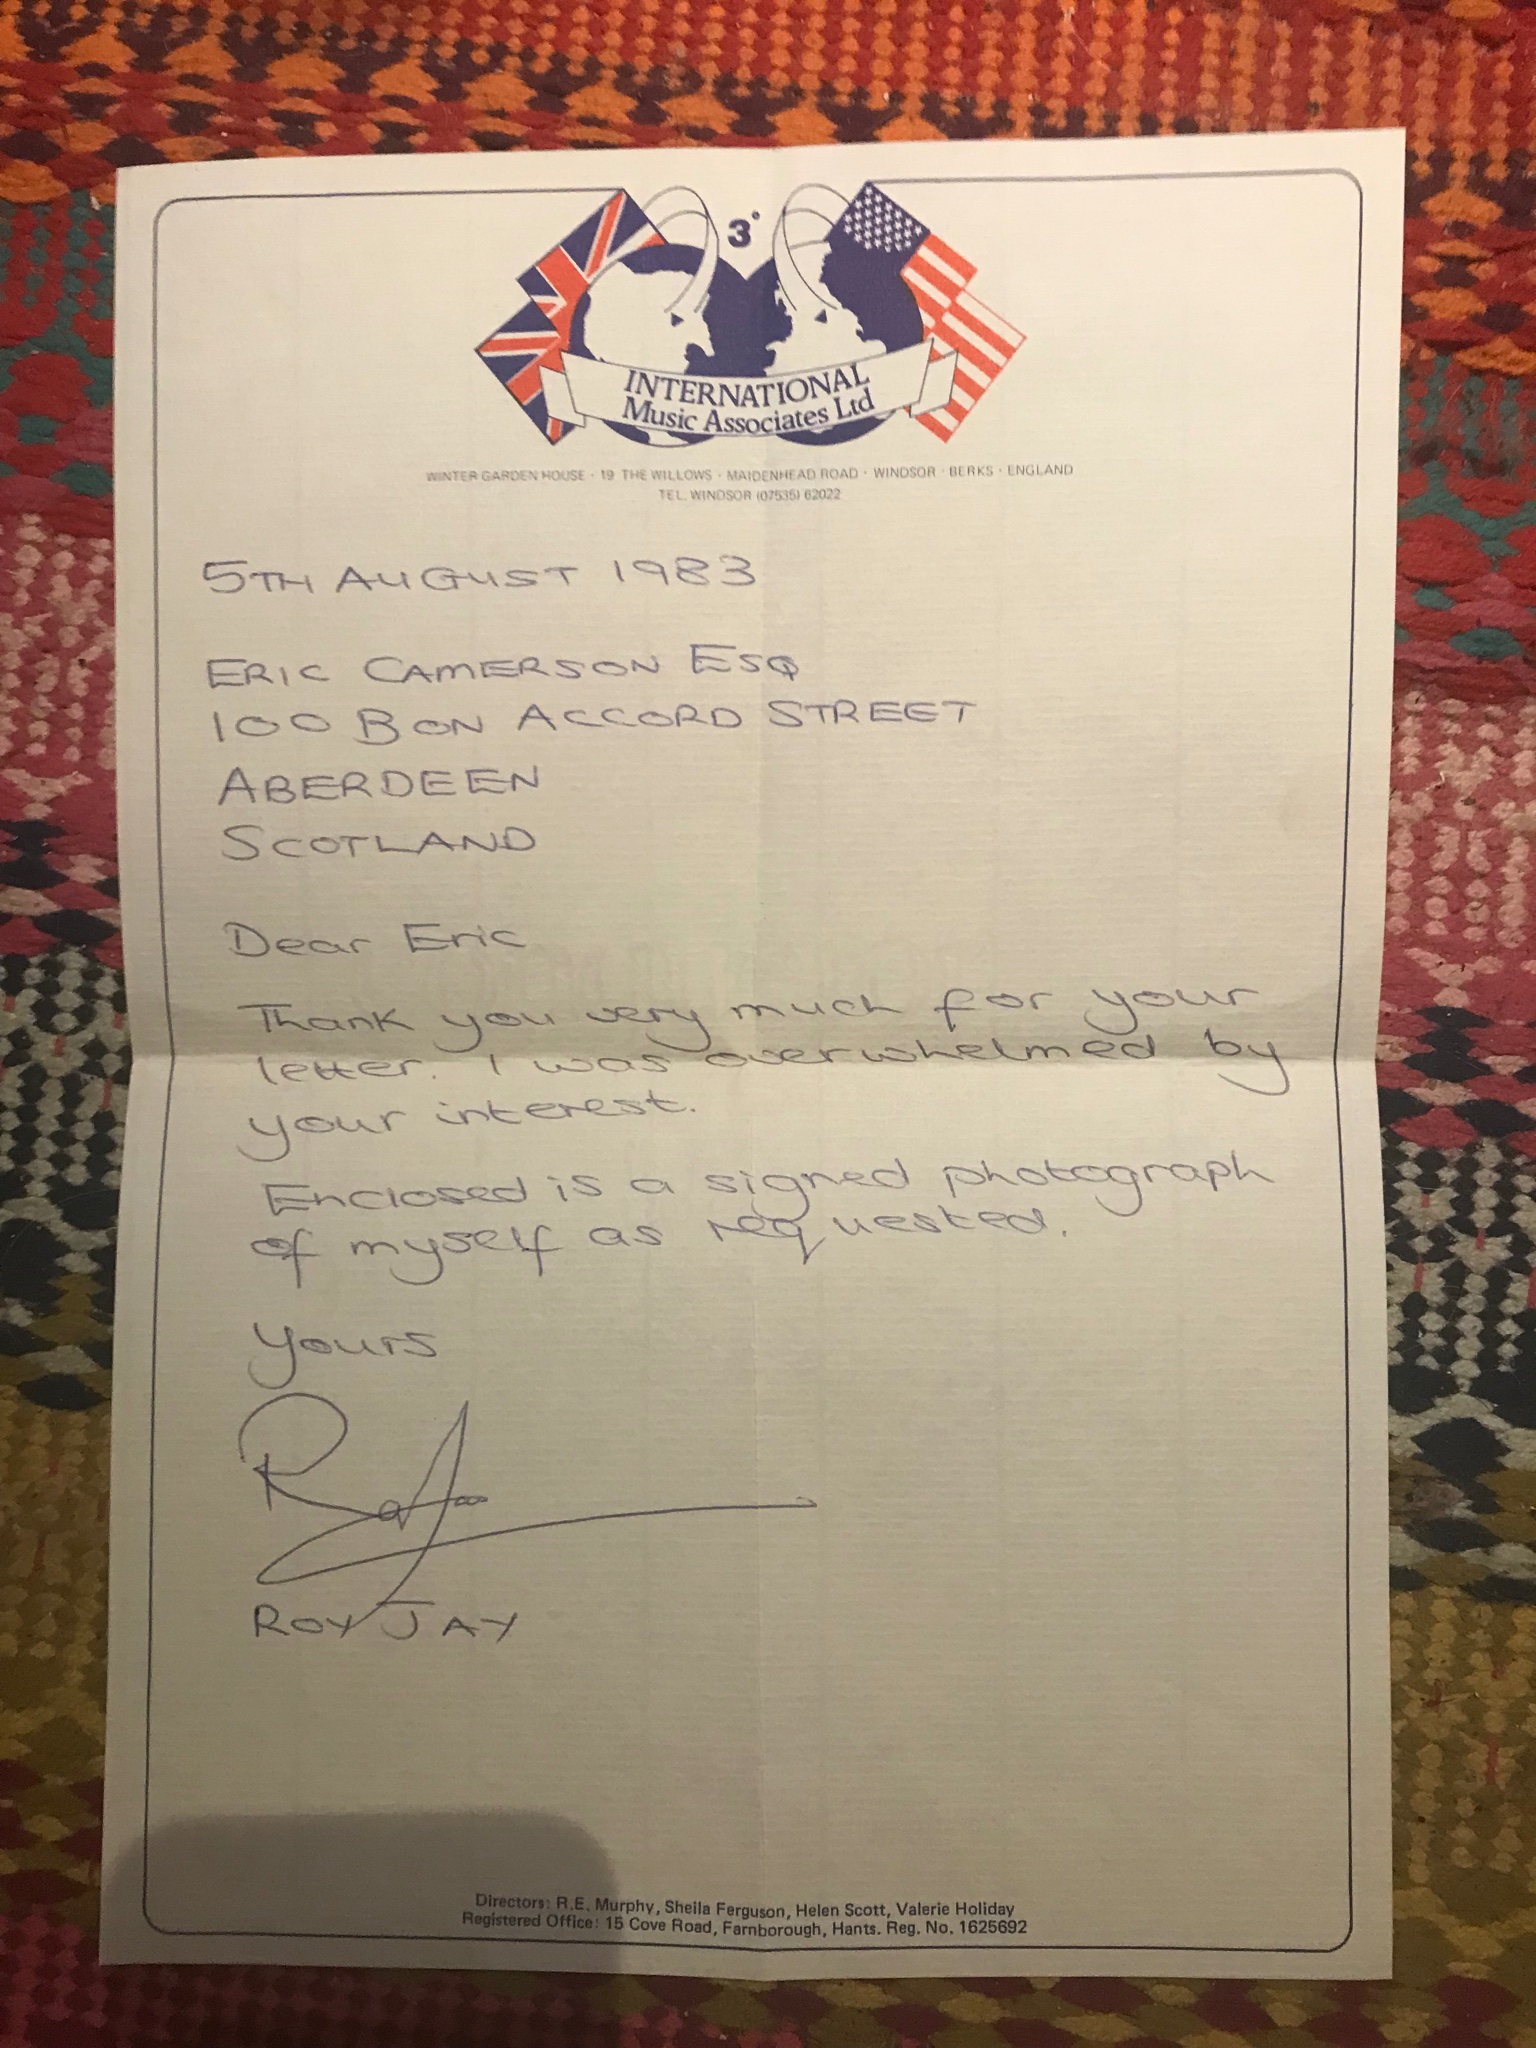 3°
INTERNATIONAL
Music Associates Ltd
WINTER GARDEN HOUSE · 19 THE WILLOWS · MAIDENHEAD ROAD · WINDSOR · BERKS · ENGLAND
TEL. WINDSOR (07535) 62022
5TH AUGUST 1983
ERIC CAMERSON ESQ
100 BON ACCORD STREET
ABERDEEN
SCOTLAND
Dear Eric
Thank you very much for your
letter. I was overwhelmed by
your interest.
Enclosed is a signed photograph
of myself as requested.
Yours
ROY JAY
Directors: R.E. Murphy, Sheila Ferguson, Helen Scott, Valerie Holiday
Registered Office: 15 Cove Road, Farnborough, Hants. Reg. No. 1625692